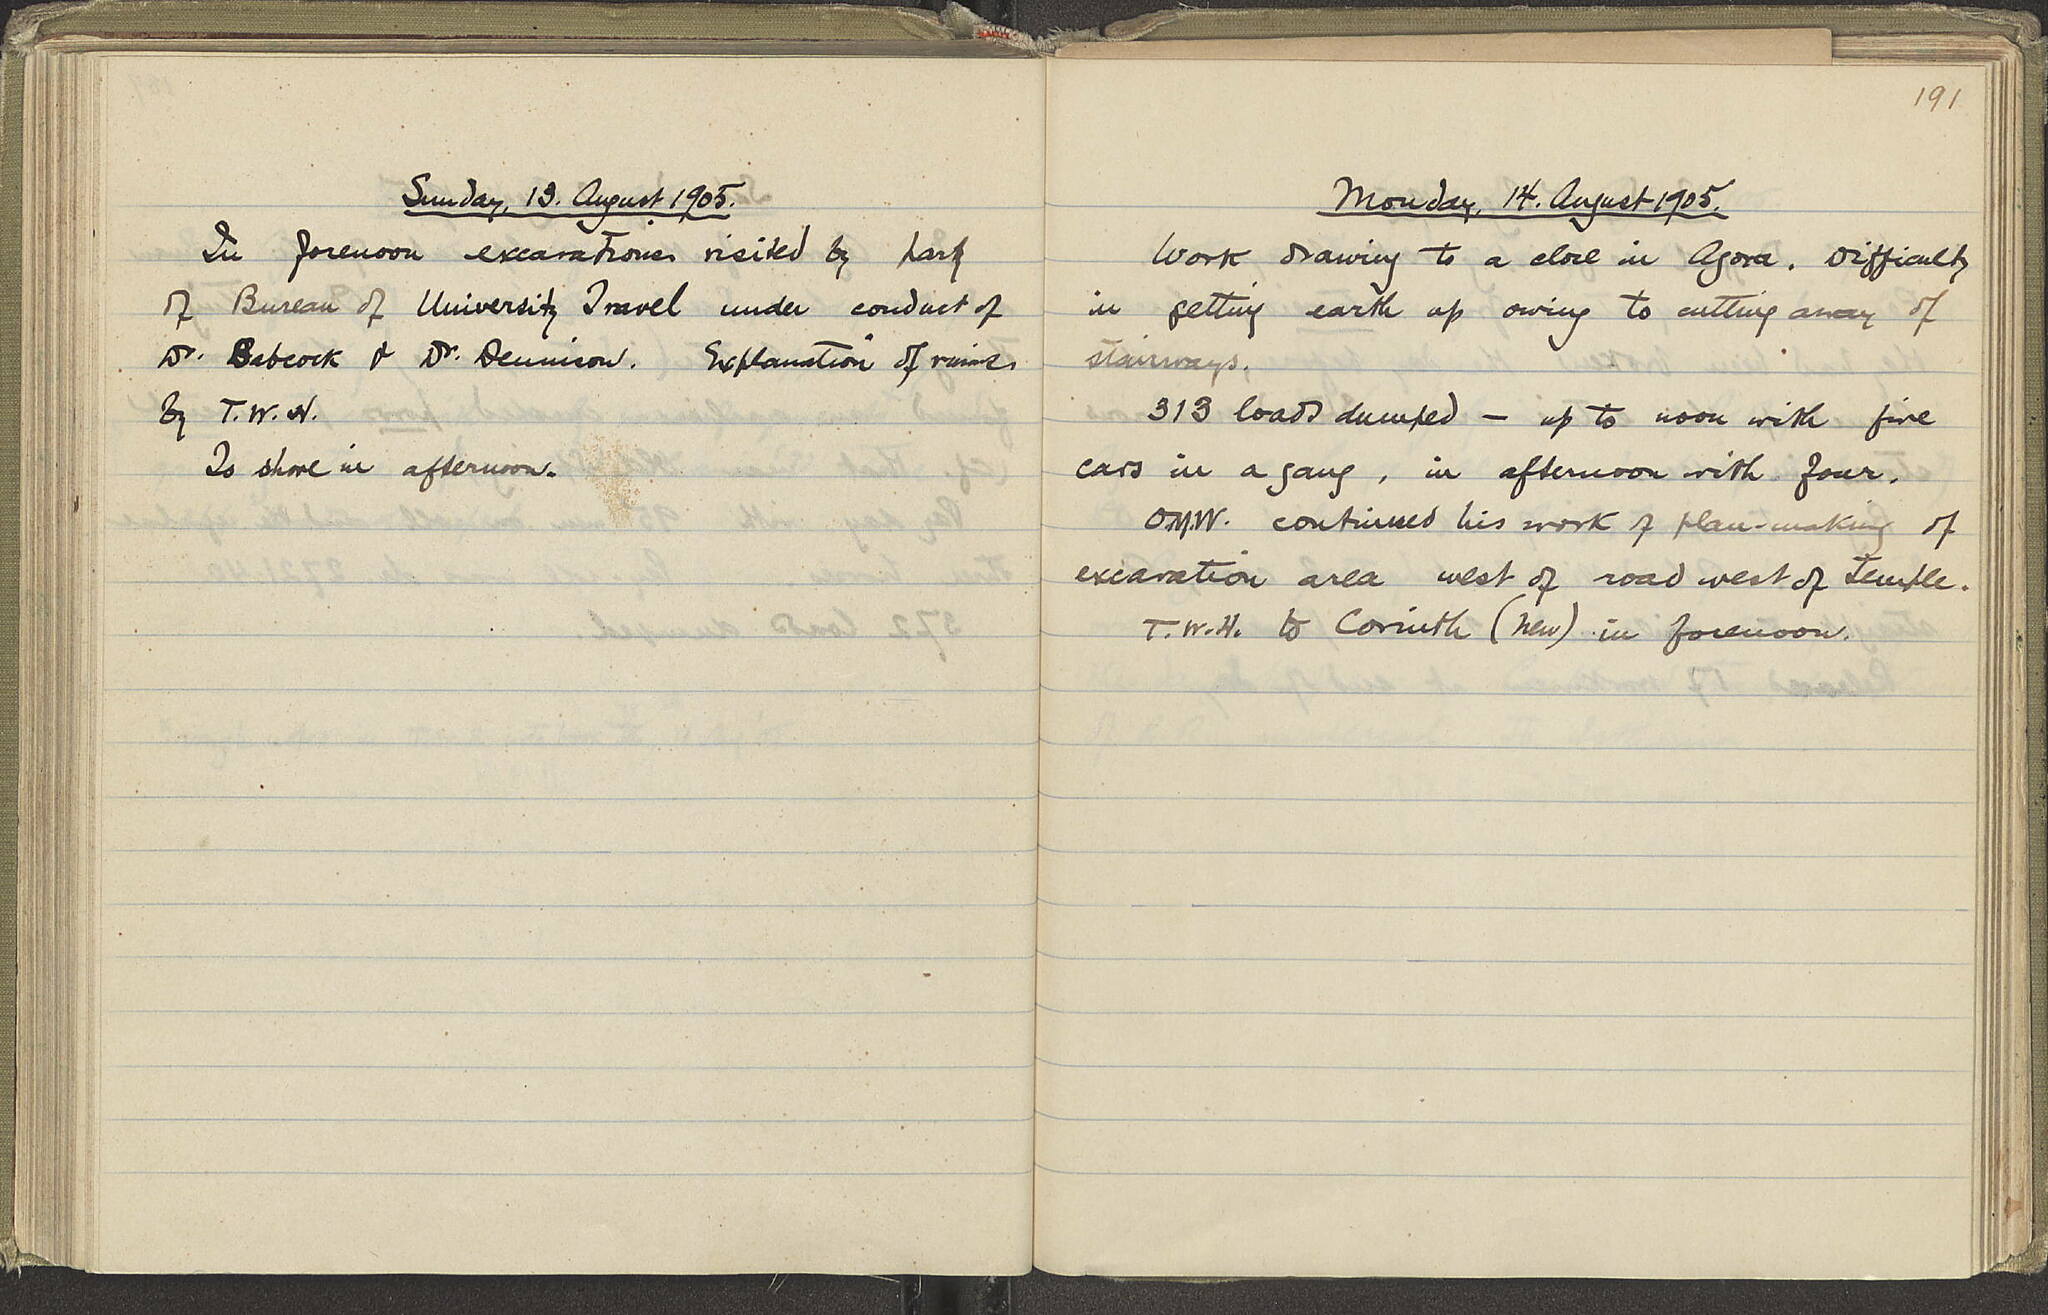 Sunday, 13. August 1905.
In forenoon excavations visited by party
of Bureau of University Travel under conduct of
Dr. Babcock & Dr. Dennison. Explanation of ruins
by T. W. H.
To shore in afternoon.
191
Monday, 14. August 1905.
Work drawing to a close in Agora. Difficulty
in getting earth up owing to cutting away of
stairways.
313 loads dumped — up to noon with five
cars in a gang, in afternoon with four.
continued his work of plan-making of
excavation area west of road west of Temple.
T. W. H. to Corinth (New) in forenoon.